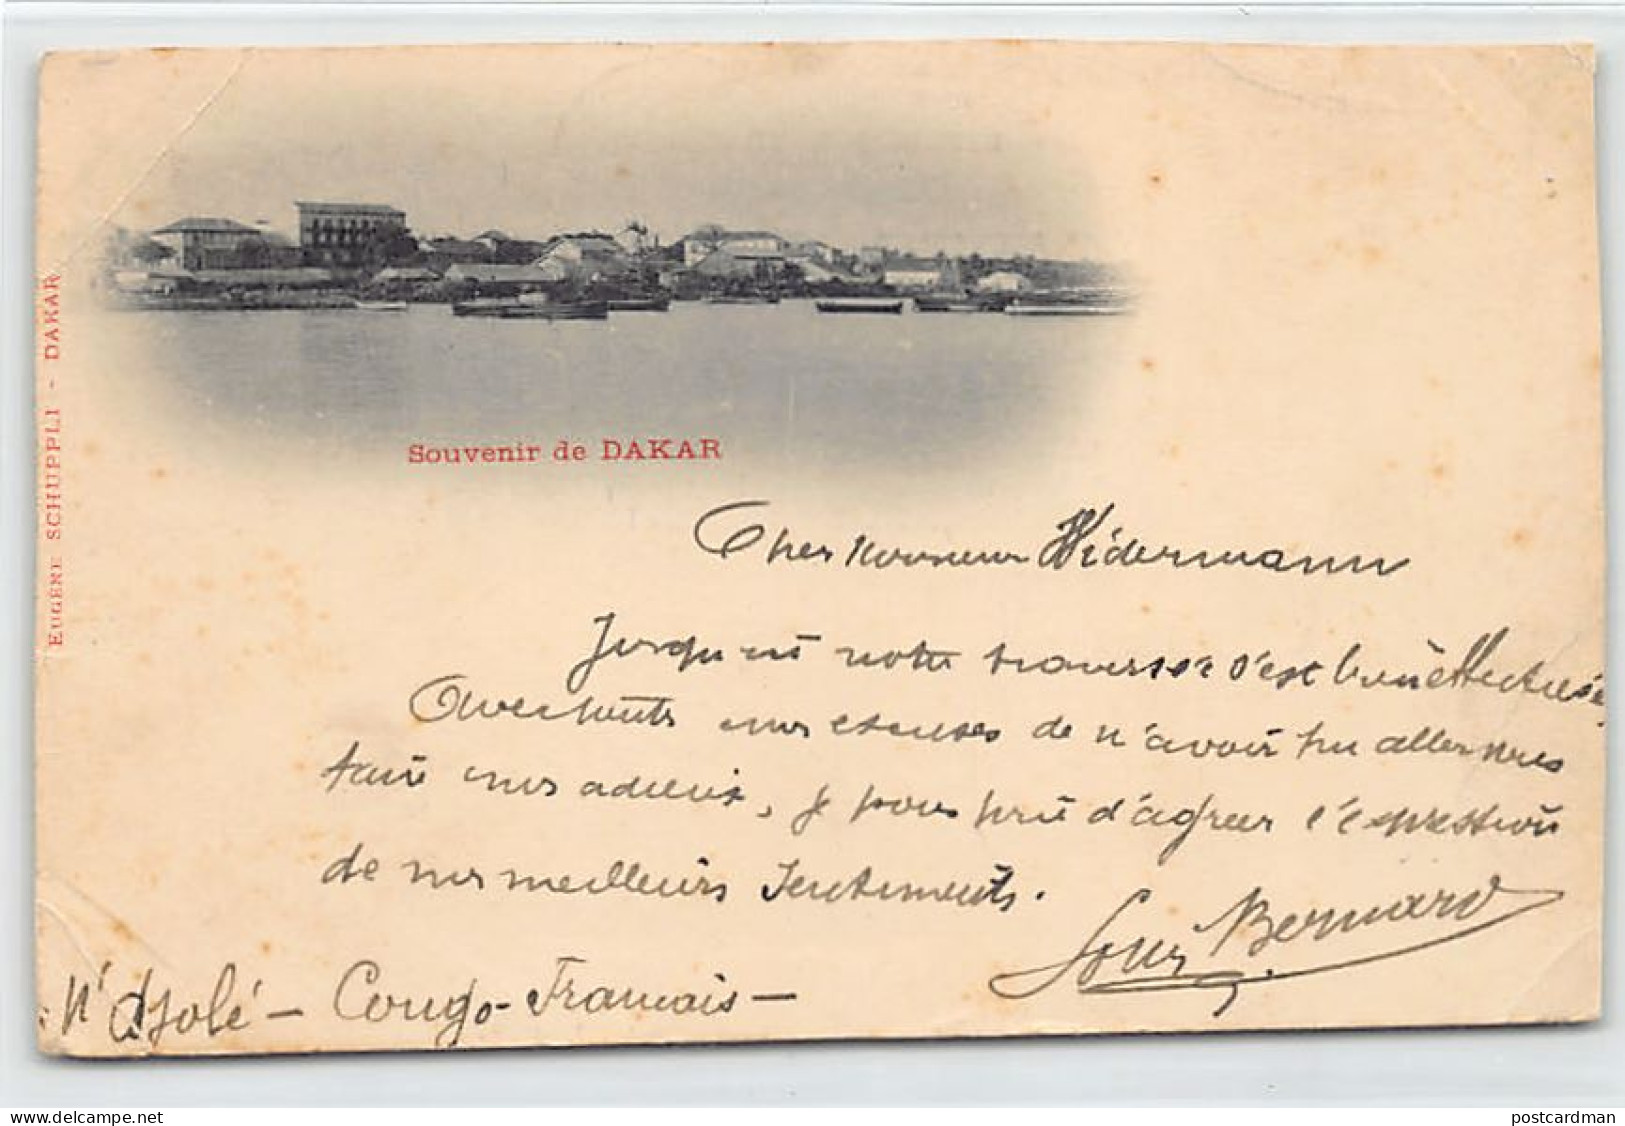 EUGÈNE SCHUPPLI - DAKAR
Souvenir de DAKAR
Cher Monsieur Widermann
Jusqu'ici notre traversée s'est bien effectuée
Avec toutes mes excuses de n'avoir pu aller vous
faire mes adieux, je vous prie d'agréer l'expression
de mes meilleurs sentiments.
Louis Bernard
N'Djolé - Congo-Français -
delcampe.net
postcardman